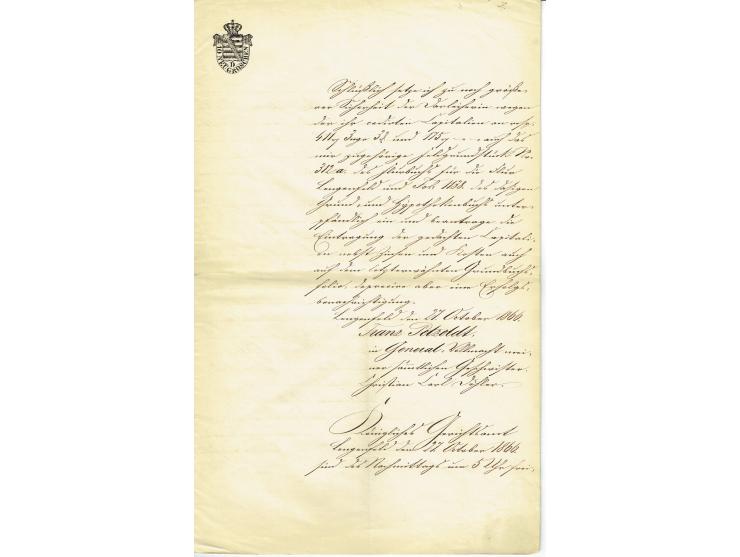 2.
10 NEU-GROSCHEN
D
Schlüßlich setze ich zu noch größe-
rer Sicherheit der Darleiherin wegen
der ihr cedirten Capitalien an resp.
411 und 175 auf das
mir zugehörige Feldgrundstück No.
312a. des Flurbuchs für die Flur
Lengenfeld und Fol. 1138. des dasigen
Grund- und Hypothekenbuchs unter-
pfändlich ein und beantrage die
Eintragung der gedachten Capitali-
en nebst Zinsen und Kosten auch
auf dem letzterwähnten Grundbuchs-
folio, deprecire aber eine Erfolgs-
benachrichtigung.
Lengenfeld den 27. October 1866.
Franz Petzoldt.
in General-Vollmacht mei-
ner sämtlichen Geschwister.
Christian Carl
Königliches Gerichtsamt
Lengenfeld den 27. October 1866.
sind des Nachmittags um 5 Uhr